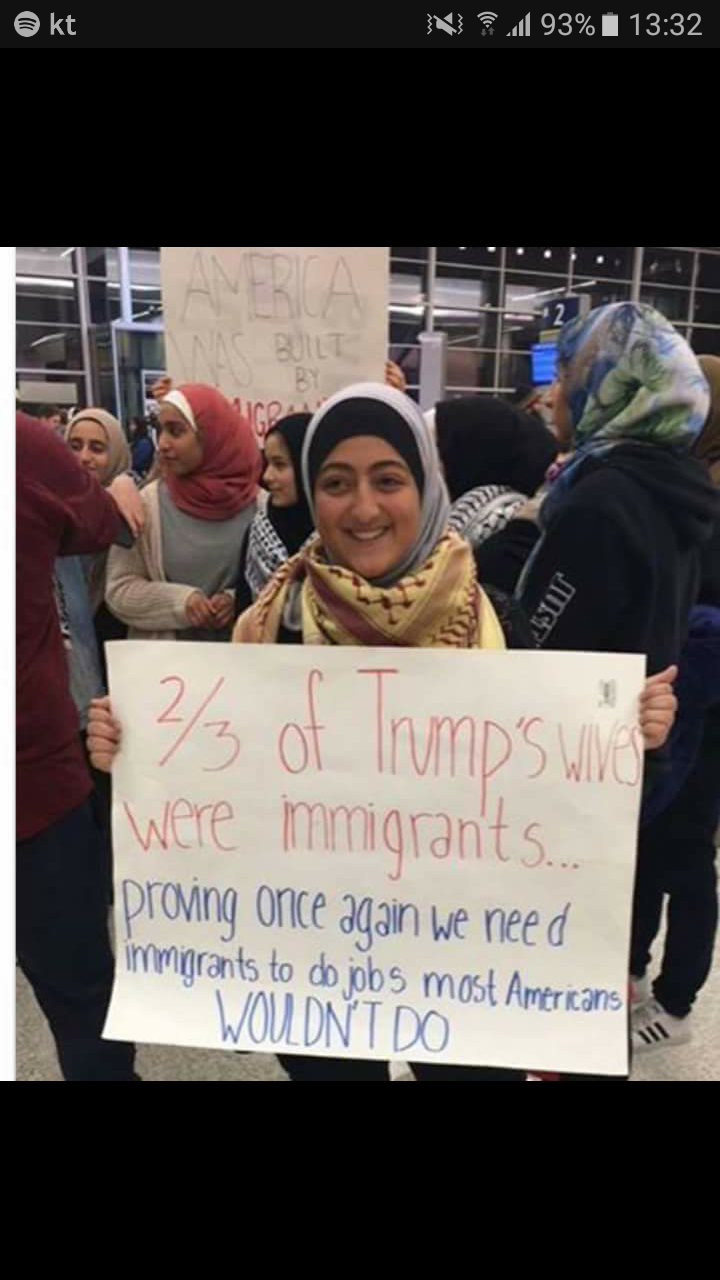 kt 93% 13:32
AMERICA
WAS BUILT
BY
2
2/3 of Trump's wives
were immigrants...
proving once again we need
immigrants to do jobs most Americans
WOULDN'T DO